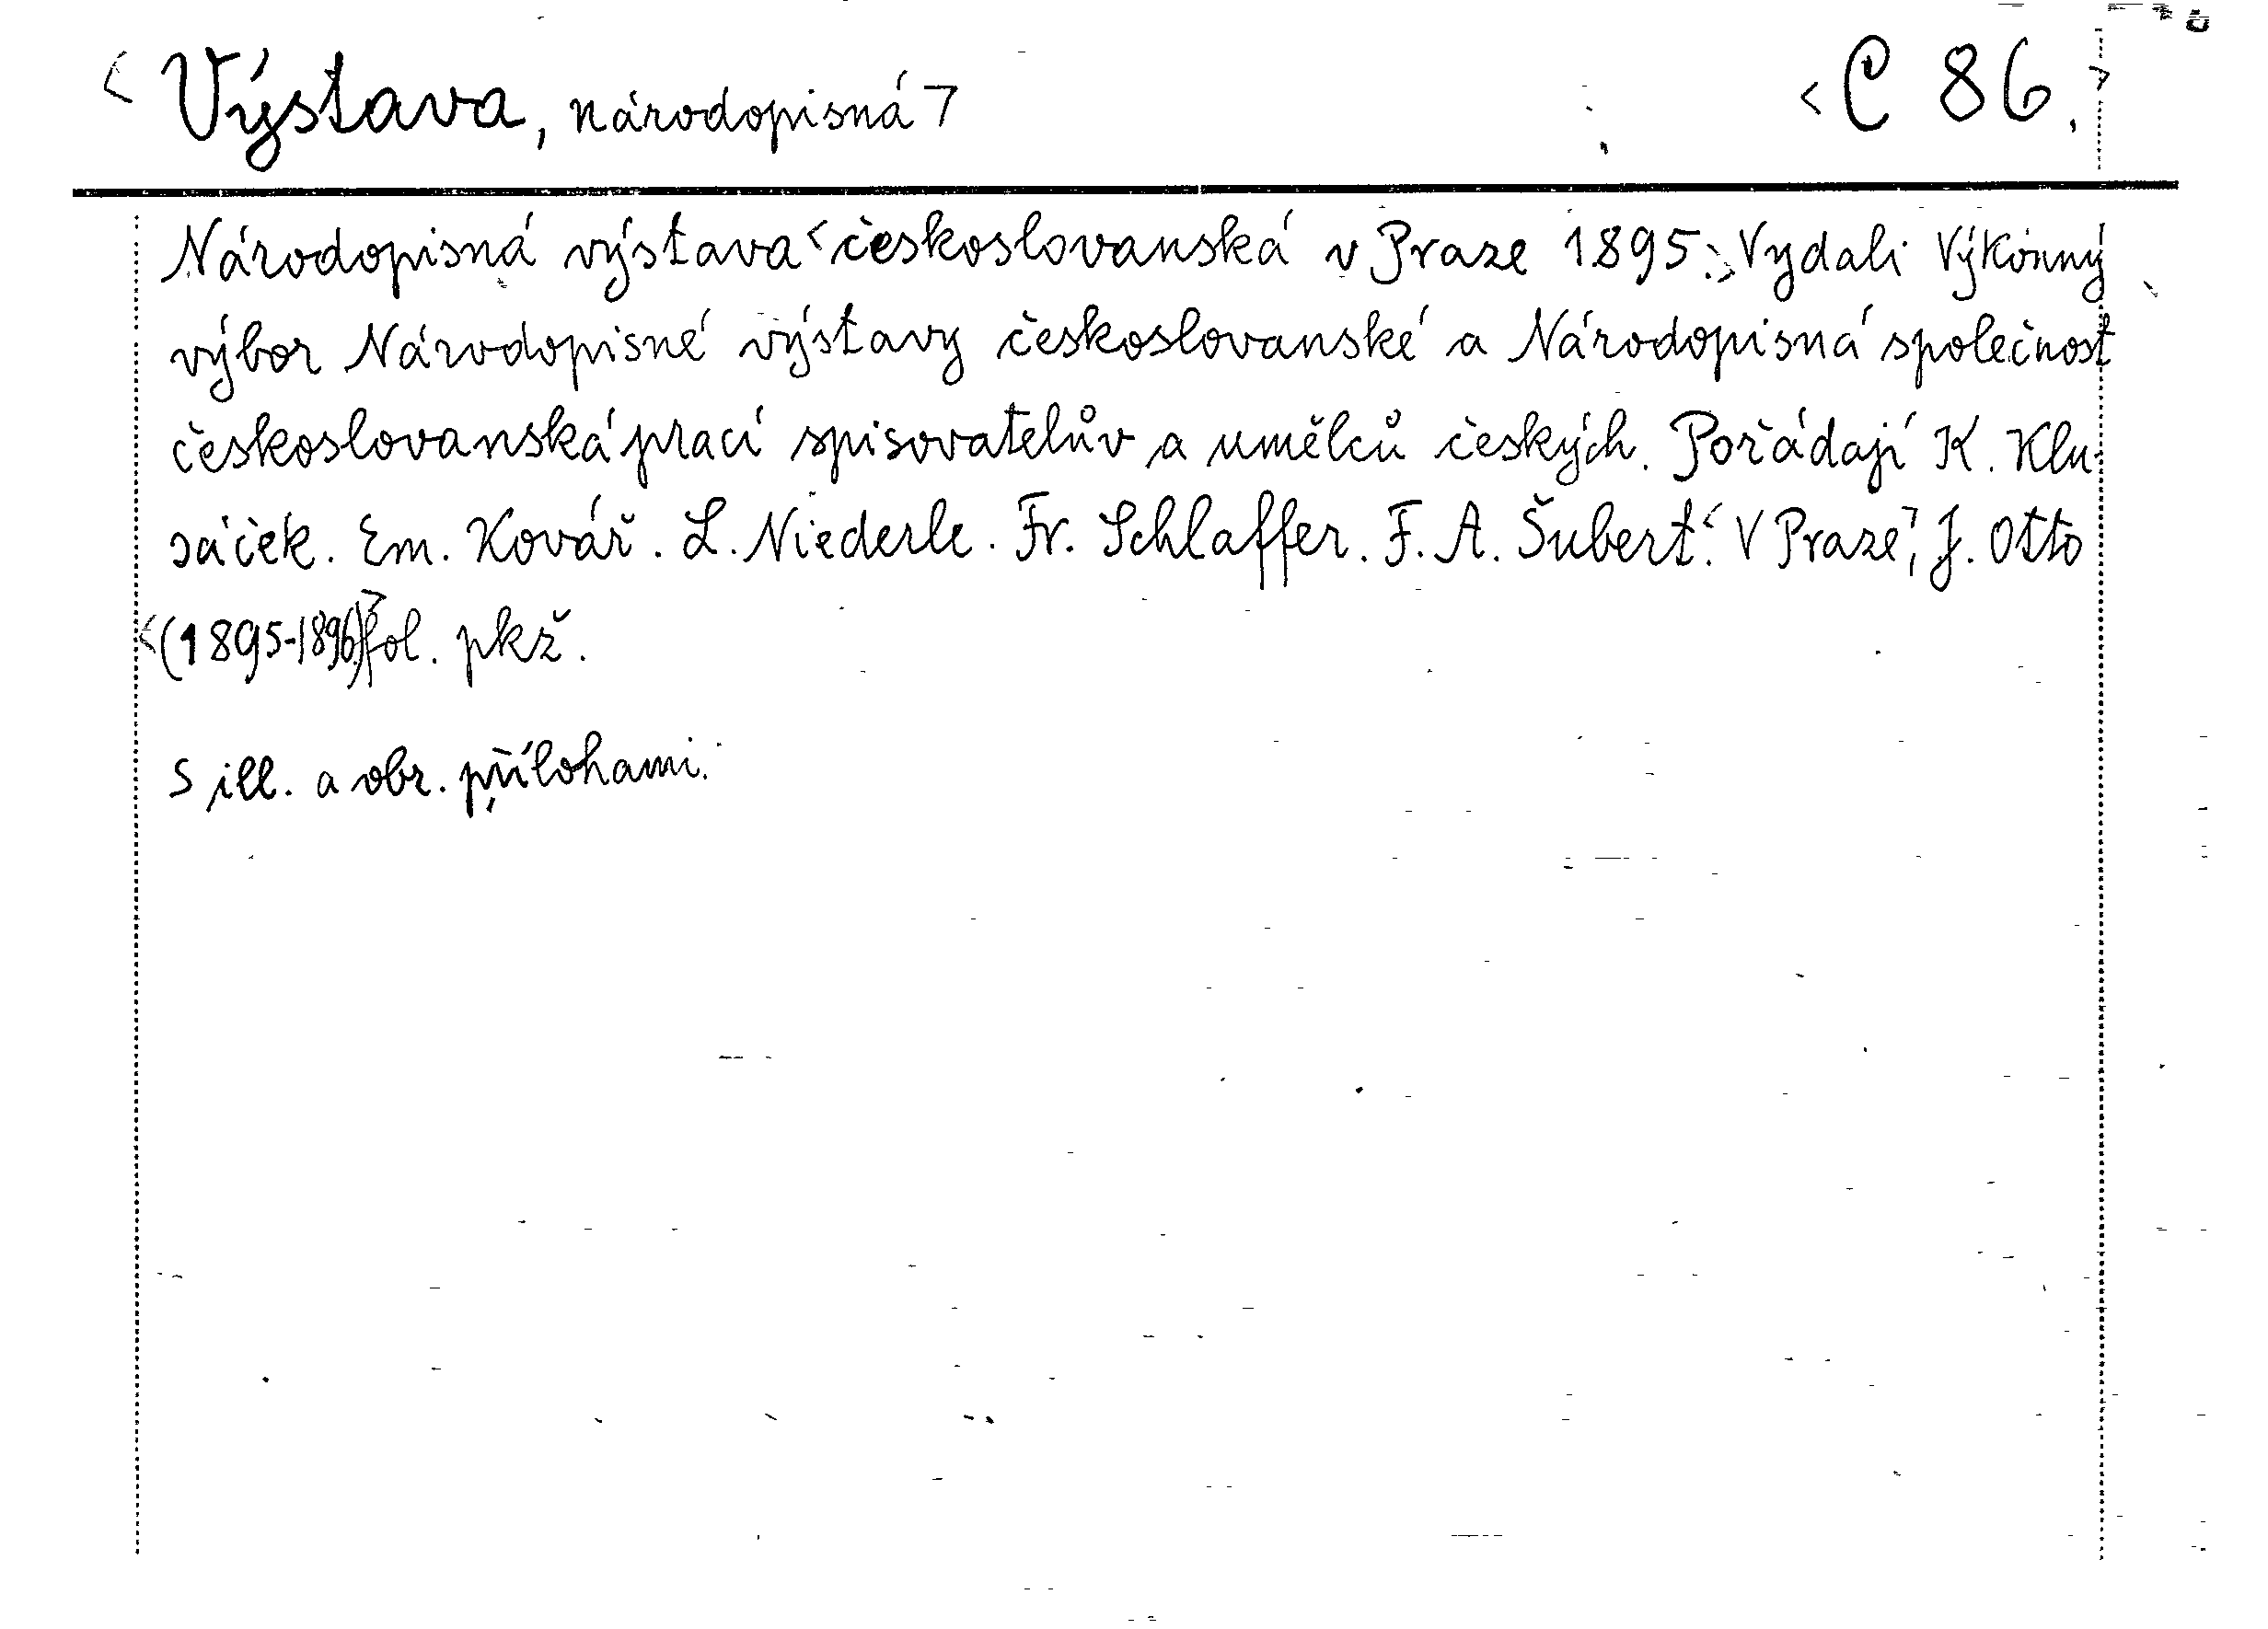 <Výstava, národopisná> <C 86.>
Národopisná výstava <českoslovanská v Praze 1895.> Vydali Výkonný
výbor Národopisné výstavy českoslovanské a Národopisná společnost
českoslovanská prací spisovatelův a umělců českých. Pořádají K. Klu-
sáček. Em. Kovář. L. Niederle. Fr. Schlaffer. F. A. Šubert. <V Praze>, J. Otto
<(1895-1896)> fol. pkž.
S ill. a obr. přílohami.